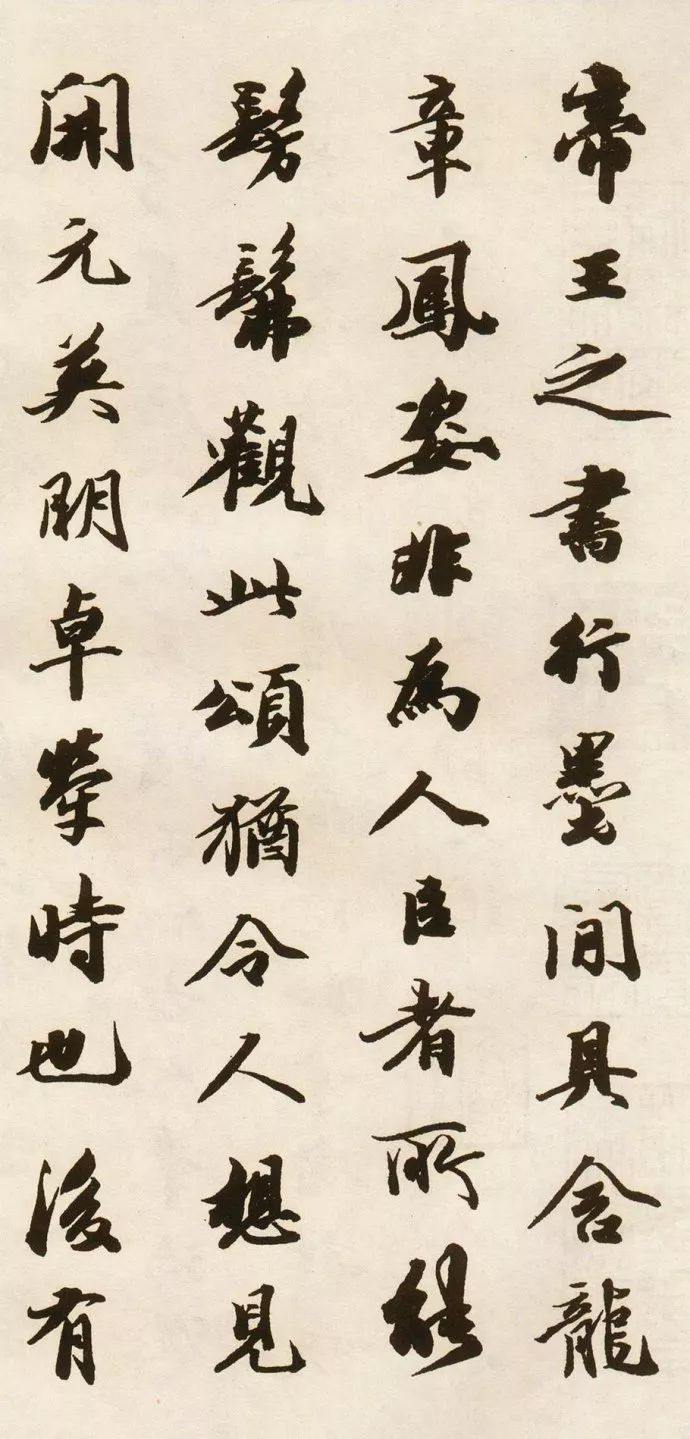 帝王之書行墨間具含龍
章鳳姿非為人臣者所能
髣髴觀此頌猶令人想見
開元英明卓犖時也後有